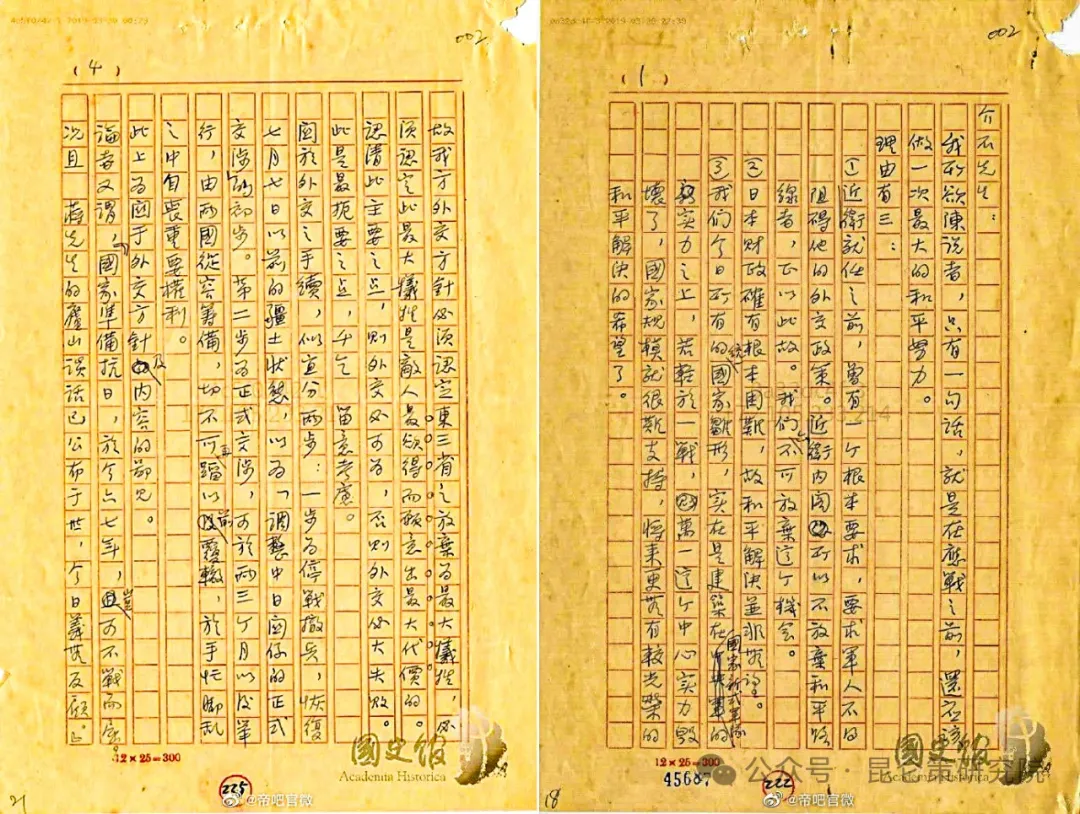 002
(1)
介石先生：
我所欲陳說者，只有一句話，就是在應戰之前，還应該
做一次最大的和平努力。
理由有三：
①近衛就任之前，曾有一个根本要求，要求軍人不得
阻碍他的外交政策。近衛內阁所以不放棄和平路
線者，正以此故。我們不可放棄這个機会。
②日本財政確有根本困難，故和平解決並非無望。
③我们今日所有的統一國家雛形，实在是建築在國家新式軍隊的
实力之上，若輕於一戰，萬一這个中心实力毀
壞了，國家規模就很難支持，將来更無有較光榮的
和平解決的希望了。
12×25=300
45687
222
18
002
(4)
故我方外交方針必須認定東三省之放棄为最大犧牲，必
須認定此最大犧牲是敵人最欲得而願意出最大代價的。
認清此主要之点，則外交必可为，否則外交必大失敗。
此是最扼要之点，千乞 留意考慮。
関於外交之手續，似宜分兩步：一步为停戰撤兵，恢復
七月七日以前的疆土狀態，以为「調整中日関係的正式
交涉」的初步。第二步为正式交涉，可於兩三个月以後举
行，由兩國從容籌備，切不可再蹈以前覆轍，於手忙脚乱
之中自喪重要權利。
此上为関于外交方針及內容的鄙见。
論者又谓，「國家準備抗日，於今六七年，豈可不戰而屈。
况且 蔣先生的廬山談話已公布于世，今日義無反顧。」
12×25=300
225
21
國史館
Academia Historica
@帝吧官微
國史館
Academia Historica
公众号·昆仑策研究院
@帝吧官微